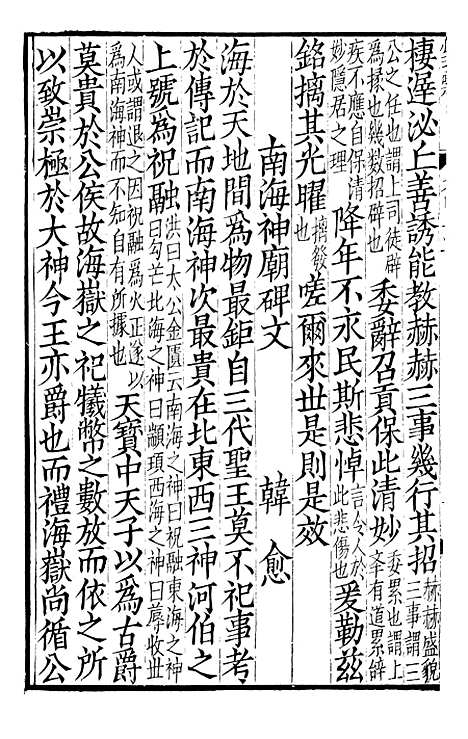 棲遲泌丘善誘能教赫赫三事幾行其招赫赫盛貌三事謂三
公之任也謂上司徒辟為掾也幾數招辟也委辭召貢保此清妙委累也謂上舉有道累辭
疾不應自保清妙隱居之理降年不永民斯悲悼言令人於此悲傷也爰勒茲
銘摛其光曜摛發也嗟爾來世是則是效
南海神廟碑文 韓愈
海於天地間爲物最鉅自三代聖王莫不祀事考
於傳記而南海神次最貴在北東西三神河伯之
上號爲祝融洪曰太公金匱云南海之神曰祝融東海之神曰勾芒北海之神曰顓頊西海之神曰蓐收世
人或謂退之因祝融爲火正遂以爲南海神而不知自有所據也天寶中天子以爲古爵
莫貴於公侯故海嶽之祀犧幣之數放而依之所
以致崇極於大神今王亦爵也而禮海嶽尚循公